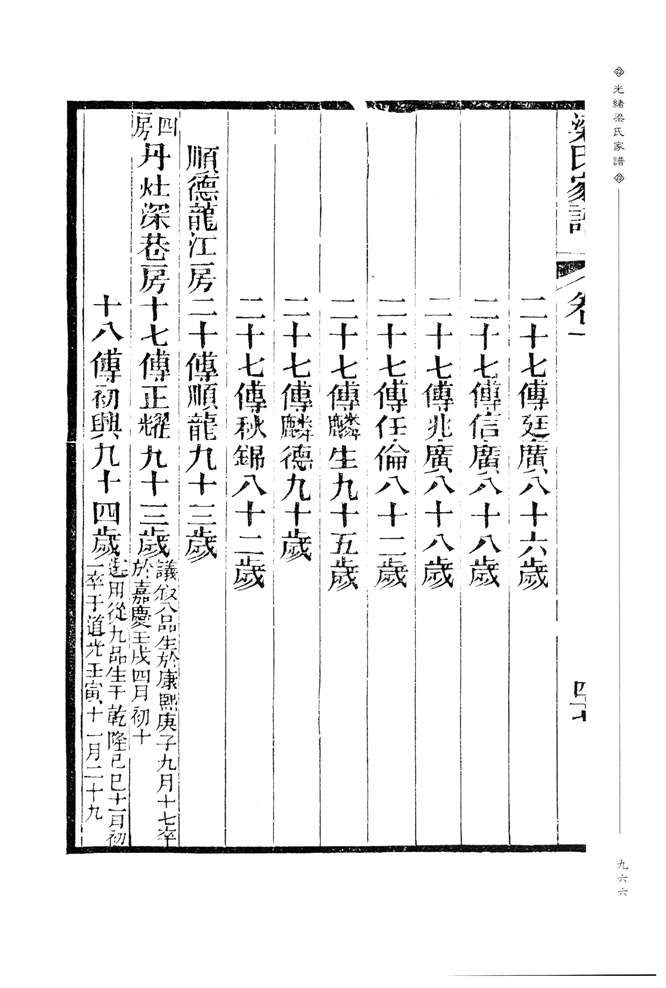 光緒梁氏家譜
九六六
梁氏家譜
卷一
四七
二十七傳廷廣八十六歲
二十七傳信廣八十八歲
二十七傳兆廣八十八歲
二十七傳任倫八十二歲
二十七傳麟生九十五歲
二十七傳麟德九十歲
二十七傳秋錦八十二歲
順德龍江房二十傳順龍九十三歲
四房丹灶深巷房十七傳正耀九十三歲議叙八品生於康熙庚子九月十七卒
於嘉慶壬戌四月初十
十八傳初興九十四歲選用從九品生于乾隆己巳十一月初
一卒于道光壬寅十一月二十九